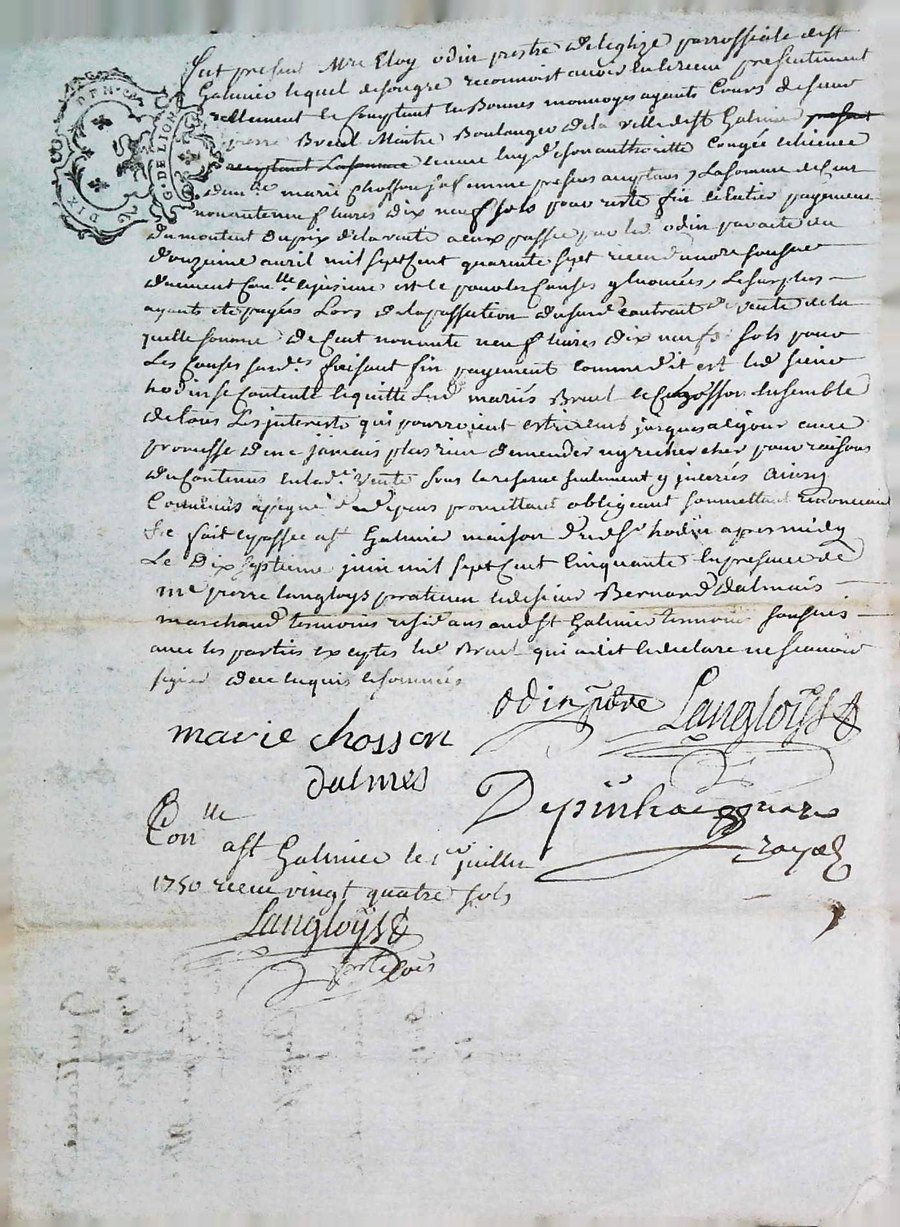 DIX DEN.
G. DE LION
fut present Mre Eloy odin prestre de leglize parrossiale de st
Galmier lequel de son gre reconnoist avoir eu et receu presentement
reellement et comptant en Bonnes monnoyes ayants Cours de sieur
pierre Breul Maitre Boulanger de la ville de st Galmier present
acceptant La somme
marie Chosson sa femme presens acceptans, La somme de Cent
nonante neuf livres dix neuf sols pour reste fin et Entier payement
du montent du prix de la vente a eux passée par led. odin par acte du
onzieme avril mil sept Cent quarante sept receu du nore soussigné
duement Conllé et pour les Causes y enoncées, Le surplus
ayants eté payés Lors de la passassion dud. contrait de vente de la
quelle somme de Cent nonante neuf livres dix neufs sols pour
Les Causes susdes faisant fin payement comme dit est led. sieur
hodin se Contente et quitte lesd. mariés Breul et Chosson Ensemble
de tous Les interests qui pourroient estre deus jusques a ce jour avec
promesse de ne jamais plus rien demender ny rechercher pour raisons
du Contenus en lade. vente sous la reserve seulement y inserés Ainsy
Convenus a peyne de depens promettant obligeant soumettant renoncant
fait et passé a st Galmier maison dud. sr hodin apres midy
Le Dix septieme juin mil sept Cent Cinquante en presence de
me pierre Langloys praticien et de sieur Bernard Dalmais
marchand temoins residans aud. st Galmier temoins soussignés
avec les parties exceptes led. Breul qui a dit et declare ne scavoir
signer de ce enquis et sommés
odin ptre Langloys
marie chosson
dalmes
Depinhac nore
royal
Conllé a st Galmier le 1er juillet
1750 receu vingt quatre sols
Langloys